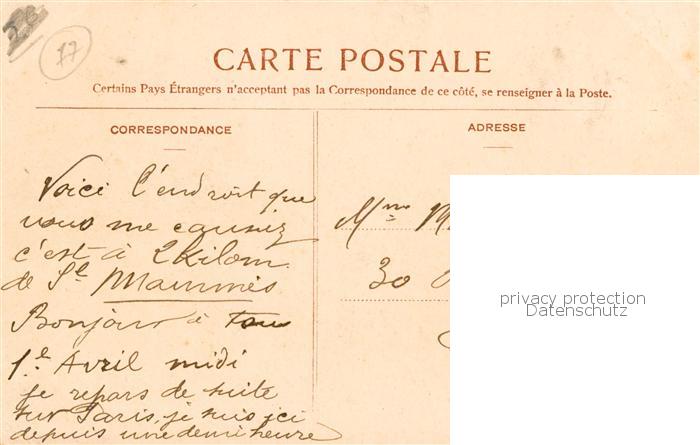 77
CARTE POSTALE
Certains Pays Étrangers n'acceptant pas la Correspondance de ce côté, se renseigner à la Poste.
CORRESPONDANCE
ADRESSE
Voici l'endroit que
vous me
c'est à 2 Kilom.
de St Mammès
Bonjour à tous
1e Avril midi
je repars de suite
sur Paris, je suis ici
depuis une demi heure
Mme M
30
privacy protection
Datenschutz